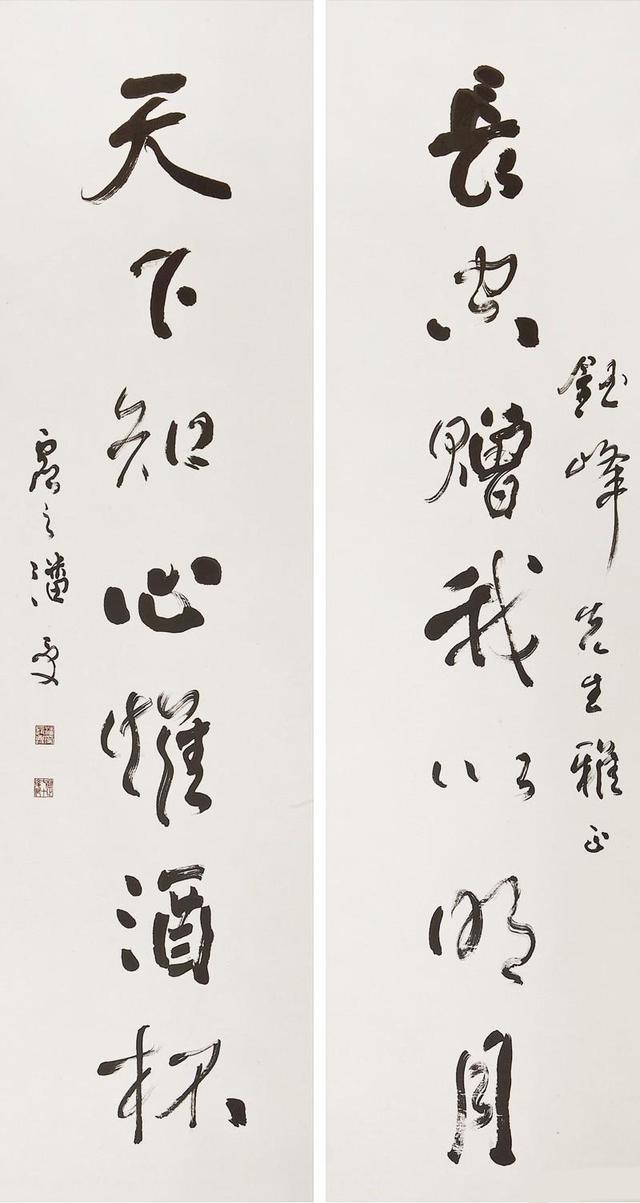 長空贈我以明月
鈺峰先生雅正
天下知心惟酒杯
虛之潘受